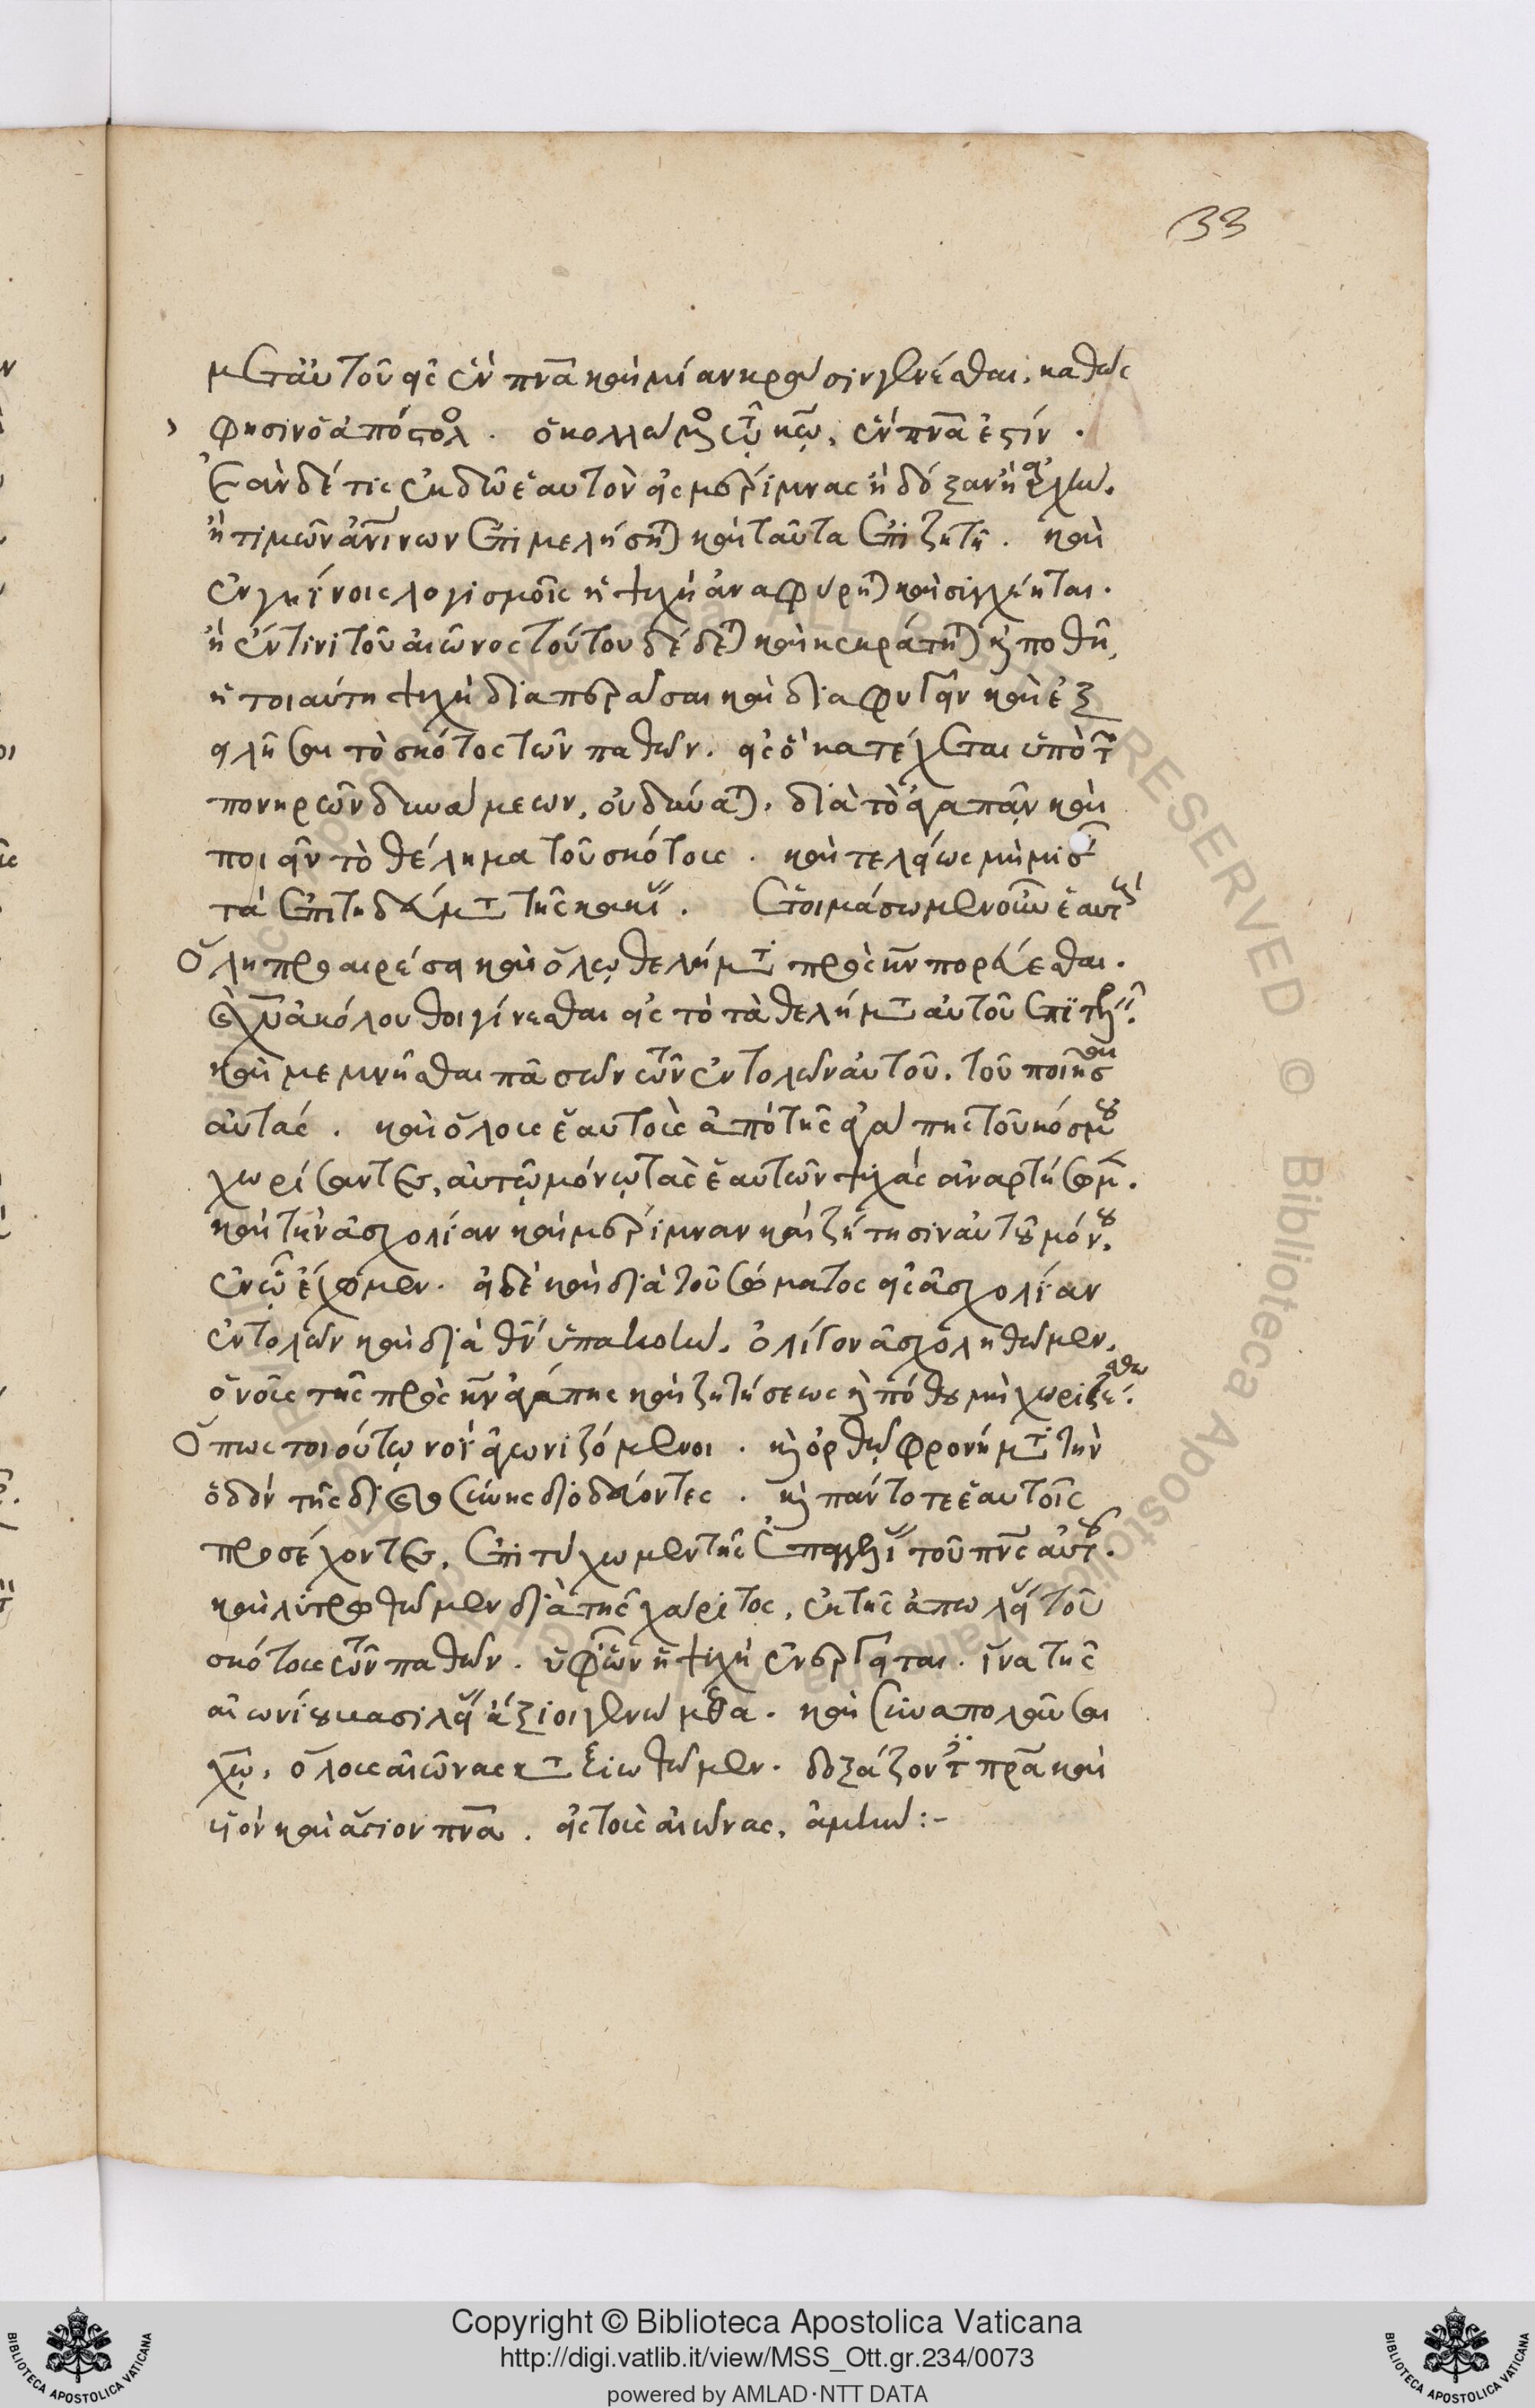 33
μετ' αὐτοῦ εἰς ἓν πνᾶ καὶ μίαν κρᾶσιν γενέσθαι, καθὼς
φησὶν ὁ ἀπόστολ. ὁ κολλώμενος τῷ κῷ, ἓν πνᾶ ἐστίν.
Ἐὰν δέ τις ἐκδῷ ἑαυτὸν εἰς μερίμνας ἢ δόξαν ἢ ἀρχὴν.
ἢ τιμῶν ἀνίνων ἐπιμελήσηται καὶ ταῦτα ἐπιζητῇ. καὶ
ἐν γηΐνοις λογισμοῖς ἡ ψυχὴ ἀναφύρηται καὶ συγχέηται.
ἢ ἔν τινι τοῦ αἰῶνος τούτου δέδεται καὶ κεκράτηται καὶ ποθῇ,
ἡ τοιαύτη ψυχὴ διαπερᾶσαι καὶ διαφυγεῖν καὶ ἐξ
ελῆσαι τὸ σκότος τῶν παθῶν. εἰς ὃ κατέχεται ὑπὸ τ
πονηρῶν δυνάμεων, οὐ δύναται. διὰ τὸ ἀγαπᾶν καὶ
ποιεῖν τὸ θέλημα τοῦ σκότους. καὶ τελείως μὴ μισεῖ
τὰ ἐπιτηδεύματα τῆς κακί. Ἑτοιμάσωμεν οὖν ἑαυτ
ὅλῃ προαιρέσει καὶ ὅλῳ θελήματι πρὸς κν πορεύεσθαι.
καὶ χυ ἀκόλουθοι γίνεσθαι εἰς τὸ τὰ θελήματα αὐτοῦ ἐπιτελεῖ.
καὶ μεμνῆσθαι πασῶν τῶν ἐντολῶν αὐτοῦ. τοῦ ποιῆσαι
αὐτάς. καὶ ὅλους ἑαυτοὺς ἀπὸ τῆς ἀγάπης τοῦ κόσμου
χωρίσαντες, αὐτῷ μόνῳ τὰς ἑαυτῶν ψυχὰς ἀναρτήσωμ.
καὶ τὴν ἀσχολίαν καὶ μέριμναν καὶ ζήτησιν αὐτοῦ μόνου,
ἐν νῷ ἔχωμεν. εἰ δὲ καὶ διὰ τοῦ σώματος εἰς ἀσχολίαν
ἐντολῶν καὶ διὰ θν ὑπακοὴν, ὀλίγον ἀσχοληθῶμεν,
ὁ νοῦς τῆς πρὸς κν ἀγάπης καὶ ζητήσεως καὶ πόθου μὴ χωριζέσθω.
Ὅπως τοιούτῳ νοῒ ἀγωνιζόμενοι. καὶ ὀρθῷ φρονήματι τὴν
ὁδὸν τῆς δικαιοσύνης διοδεύοντες. καὶ πάντοτε ἑαυτοῖς
προσέχοντες, ἐπιτύχωμεν τῆς ἐπαγγελί τοῦ πνς αὐτοῦ.
καὶ λυτρωθῶμεν διὰ τῆς χάριτος, ἐκ τῆς ἀπωλεί τοῦ
σκότους τῶν παθῶν. ὑφ' ὧν ἡ ψυχὴ ἐνεργεῖται. ἵνα τῆς
αἰωνίου βασιλεί ἄξιοι γενώμεθα. καὶ συναπολαῦσαι
χῷ, ὅλους αἰῶνας καταξιωθῶμεν. δοξάζοντ πρα καὶ
υἱὸν καὶ ἅγιον πνᾶ. εἰς τοὺς αἰῶνας, ἀμήν:-
Copyright © Biblioteca Apostolica Vaticana
http://digi.vatlib.it/view/MSS_Ott.gr.234/0073
powered by AMLAD·NTT DATA
BIBLIOTECA APOSTOLICA VATICANA
BIBLIOTECA APOSTOLICA VATICANA